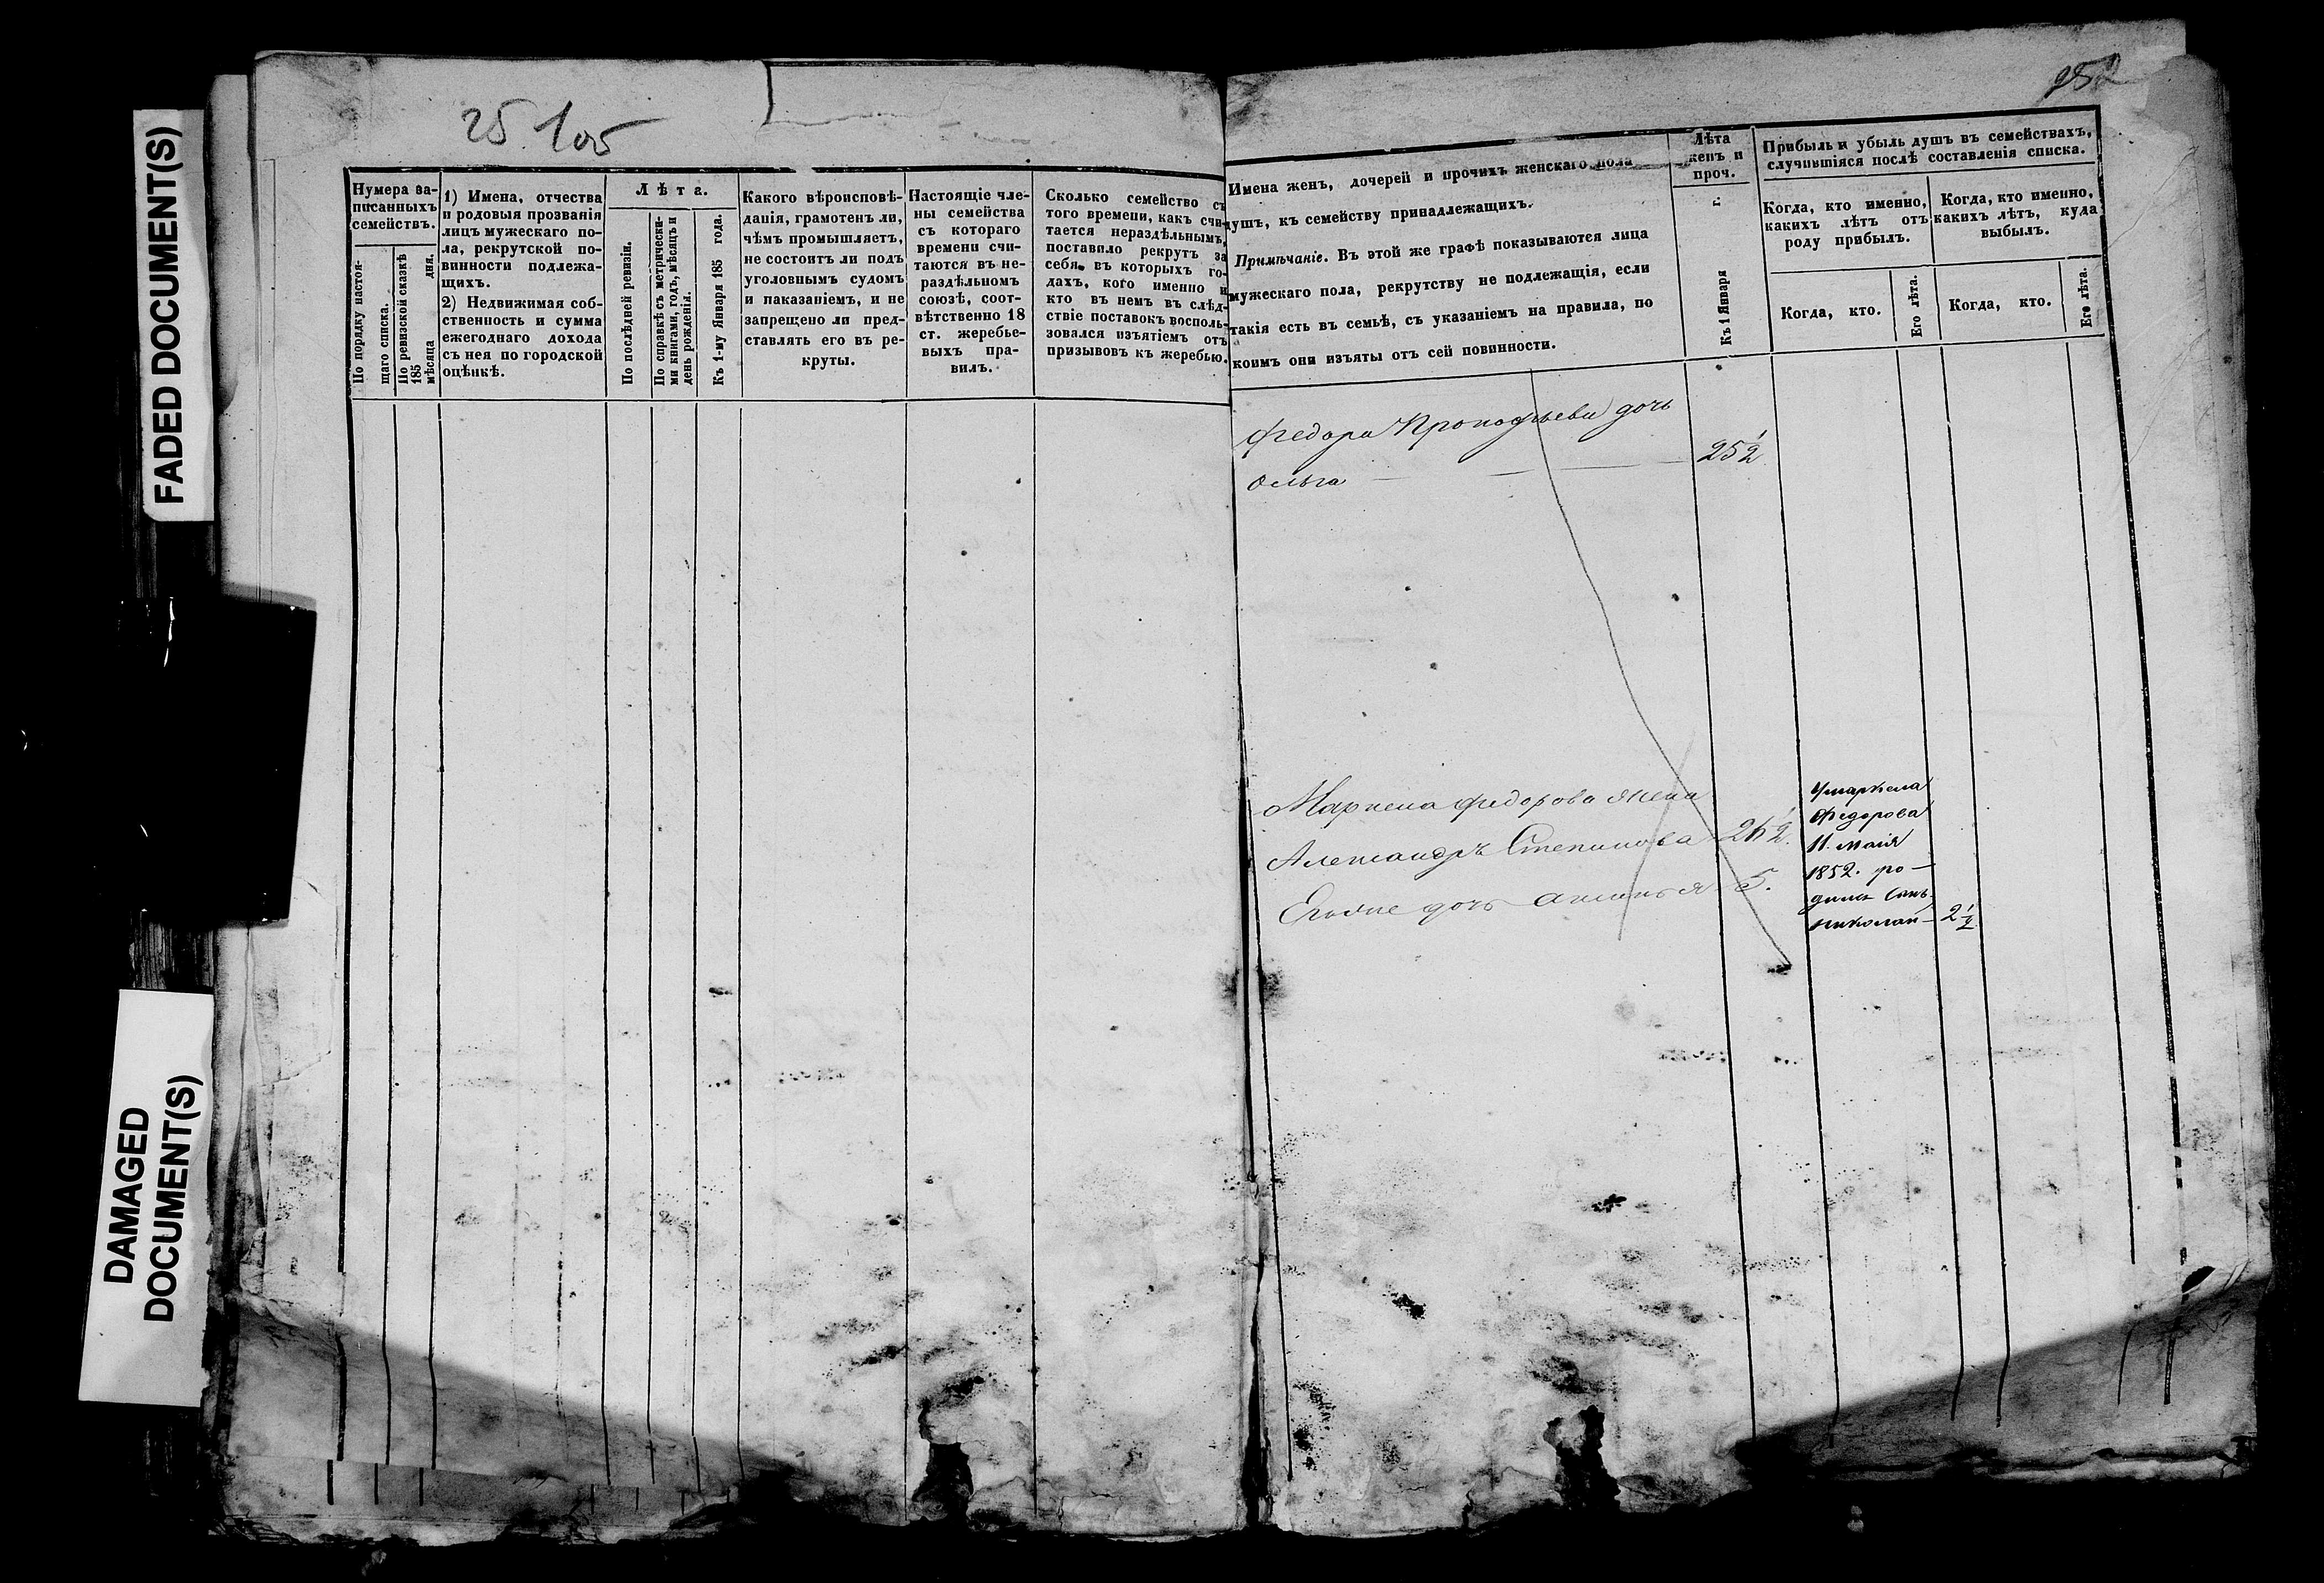 FADED DOCUMENT(S)
DAMAGED
DOCUMENT(S)
25 105
252
Нумера за-
писанныхъ
семействъ.
По порядку настоя-
щаго списка.
По ревизской сказкѣ
185 дня.
мѣсяца
1) Имена, отчества
и родовыя прозванія
лицъ мужескаго по-
ла, рекрутской по-
винности подлежа-
щихъ.
2) Недвижимая соб-
ственность и сумма
ежегоднаго дохода
съ нея по городской
оцѣнкѣ.
Лѣта.
По послѣдней ревизіи.
По справкѣ съ метрически-
ми книгами, годъ, мѣсяцъ и
день рожденія.
Къ 1-му Января 185 года.
Какого вѣроисповѣ-
данія, грамотенъ ли,
чѣмъ промышляетъ,
не состоитъ ли подъ
уголовнымъ судомъ
и наказаніемъ, и не
запрещено ли пред-
ставлять его въ ре-
круты.
Настоящіе чле-
ны семейства
съ котораго
времени счи-
таются въ не-
раздѣльномъ
союзѣ, соот-
вѣтственно 18
ст. жеребье-
выхъ пра-
вилъ.
Сколько семейство съ
того времени, какъ счи-
тается нераздѣльнымъ,
поставило рекрутъ за
себя, въ которыхъ го-
дахъ, кого именно и
кто въ немъ въ слѣд-
ствіе поставокъ восполь-
зовался изъятіемъ отъ
призывовъ къ жеребью.
Имена женъ, дочерей и прочихъ женскаго пола
душъ, къ семейству принадлежащихъ.
Примѣчаніе. Въ этой же графѣ показываются лица
мужескаго пола, рекрутству не подлежащія, если
такія есть въ семьѣ, съ указаніемъ на правила, по
коимъ они изъяты отъ сей повинности.
Лѣта
женъ и
проч.
Къ 1 Января г.
Прибыль и убыль душъ въ семействахъ,
случившіяся послѣ составленія списка.
Когда, кто именно,
какихъ лѣтъ отъ
роду прибылъ.
Когда, кто именно,
какихъ лѣтъ, куда
выбылъ.
Когда, кто.
Его лѣта.
Когда, кто.
Его лѣта.
Федора Прокофьева дочь
Ольга 25 1/2
Маркела Федорова жена
Александръ Степанова
Егоже дочь Аксинья 5.
Умаркела
Федорова
11. маія
1852. ро-
дился Сынъ
николай 2 1/2